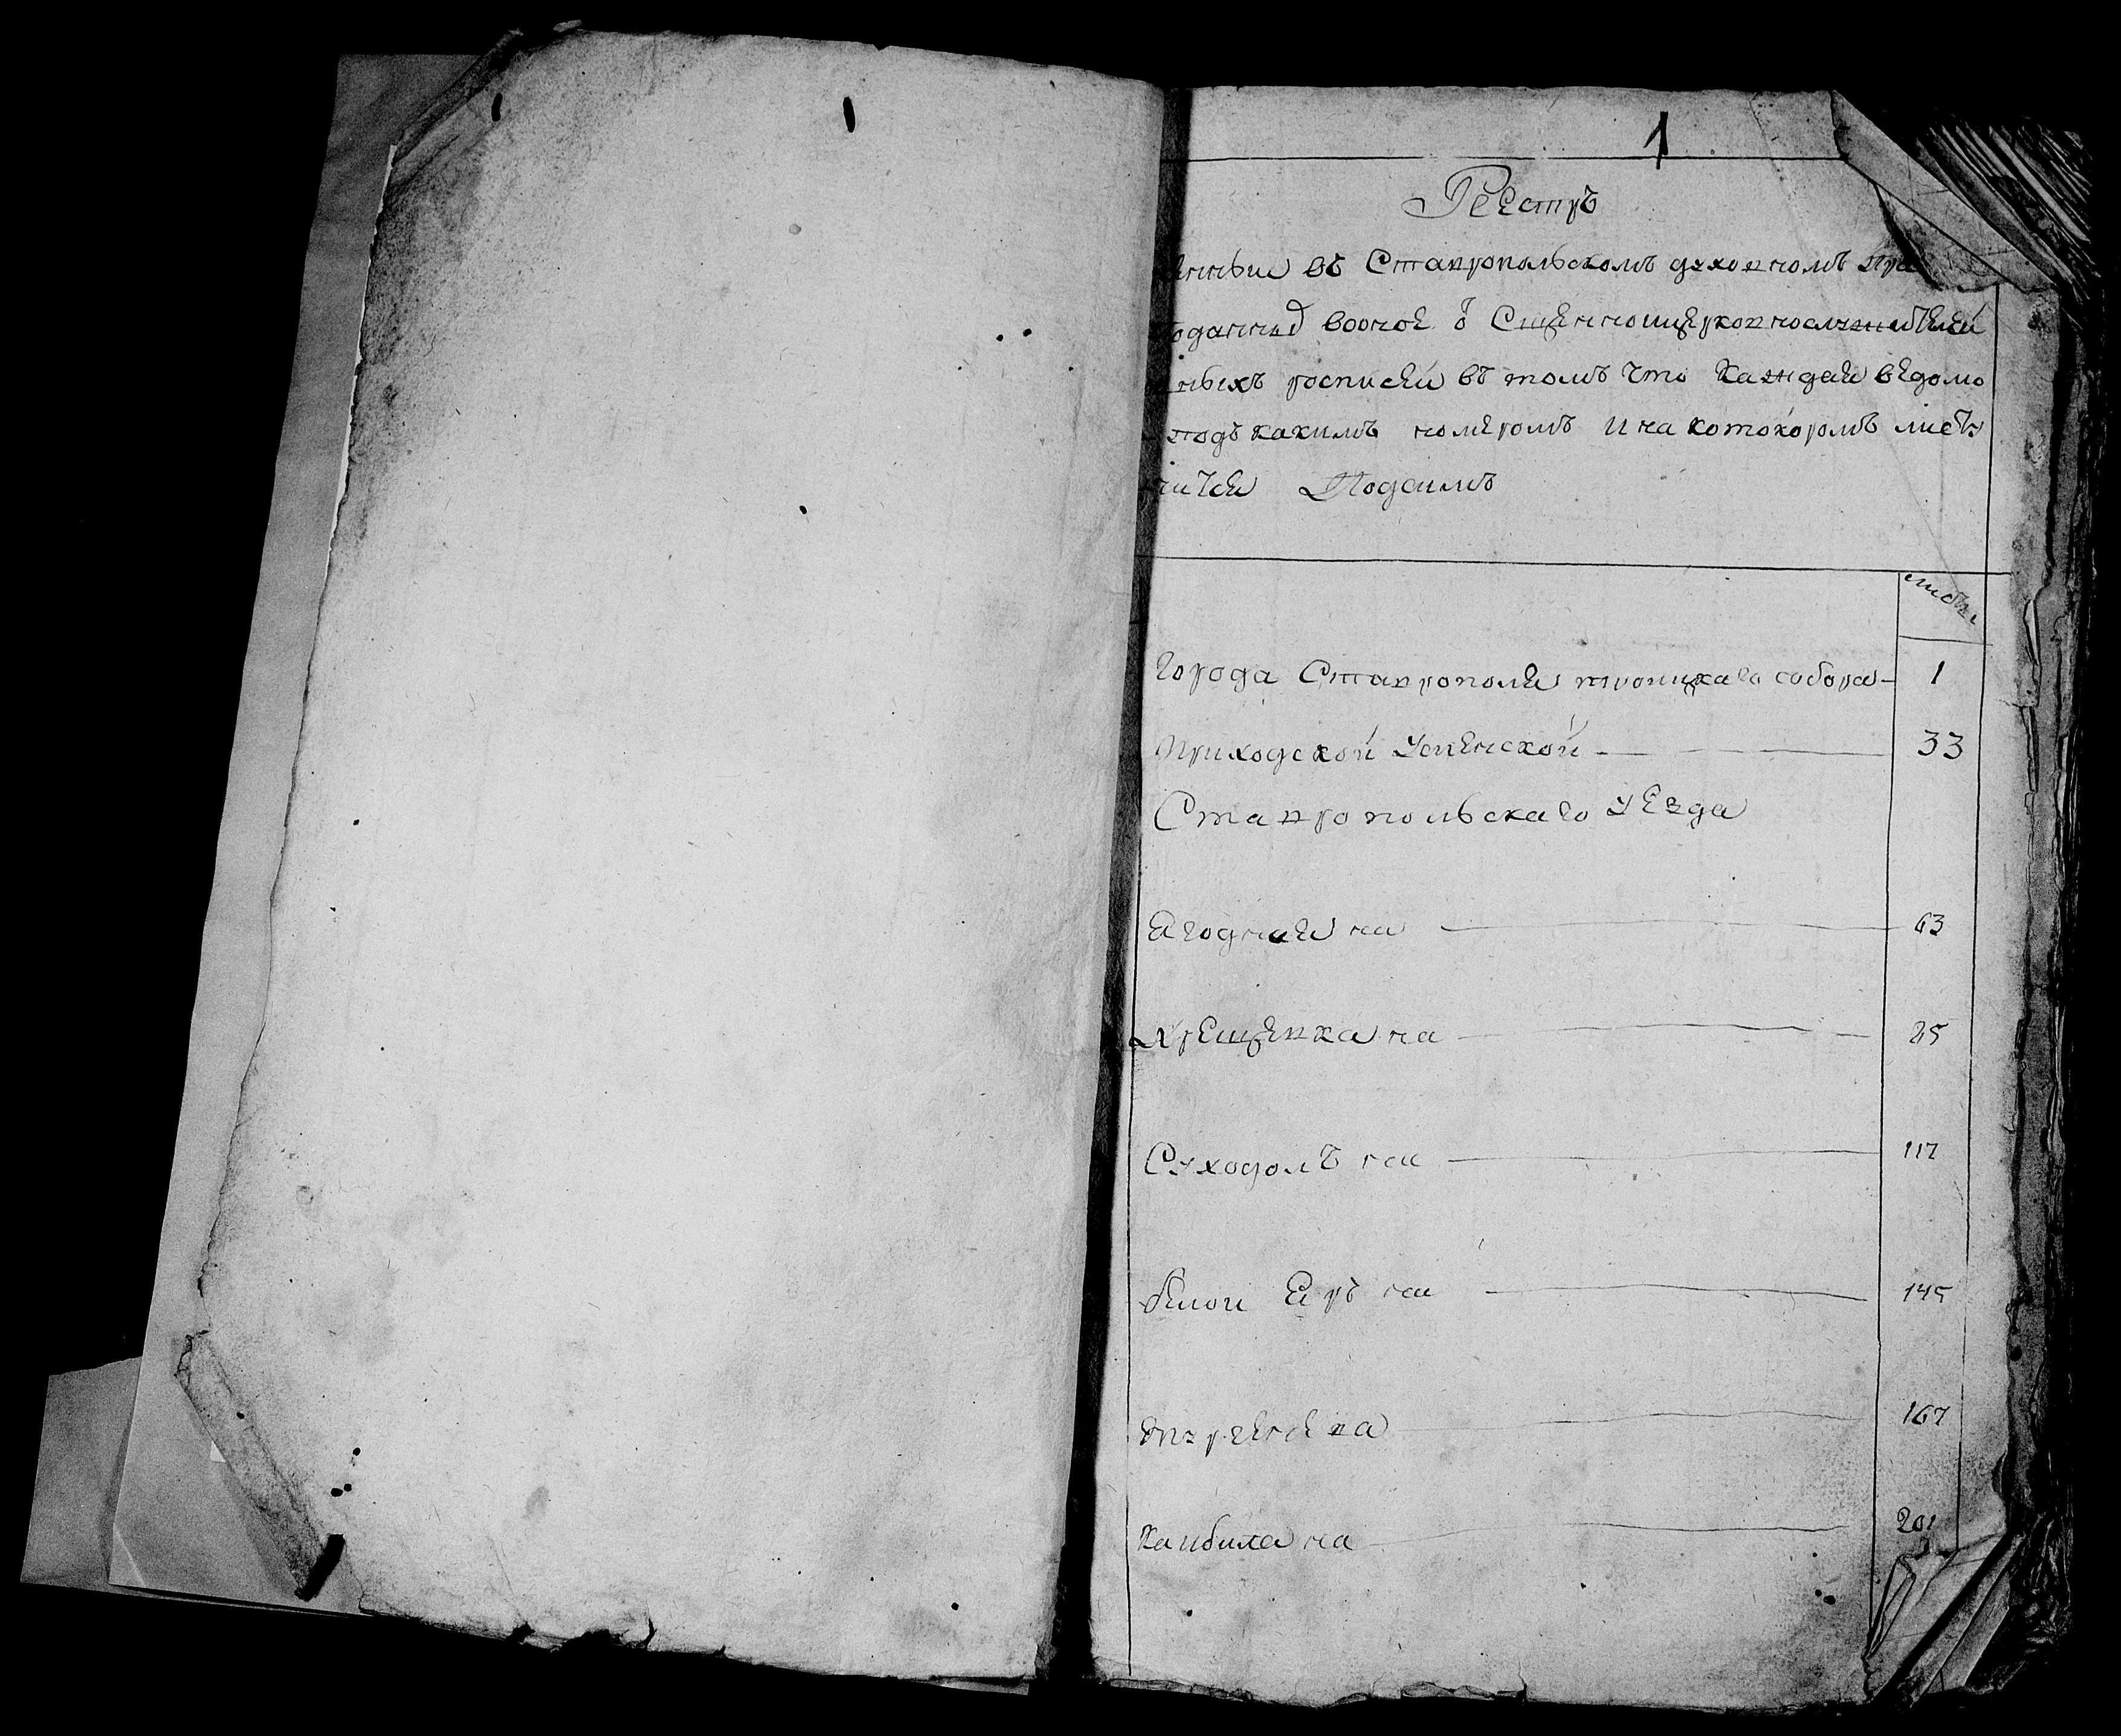 1
Реестръ
енные въ Ставропольскомъ духовномъ пра
поданныя вооное о Сщенноцерковнослужителей
ныхъ росписей въ томъ что каждая ведомо
подъ какимъ номеромъ и на котокоромъ листу
Подсимъ
листы
Города Ставрополя троицкаго собора 1
Приходской Успенской 33
Ставропольскаго уезда
Ягодная на 63
Хрещевка на 85
Суходолъ на 117
белои Яръ на 145
на 167
Каибила на 201